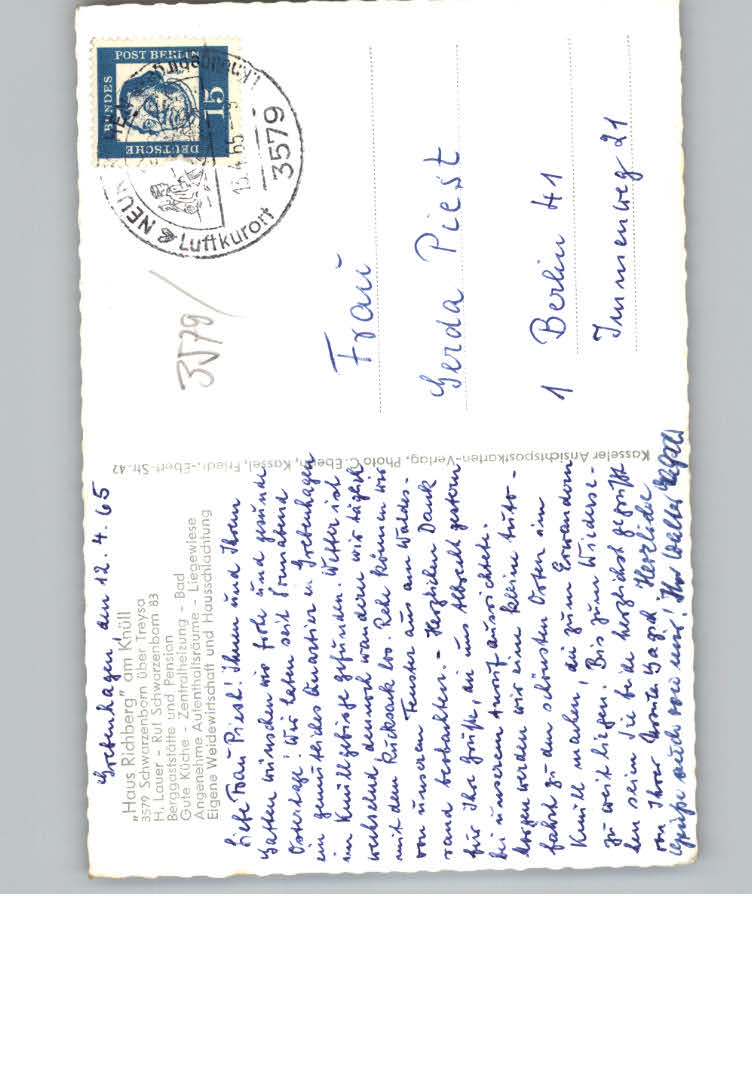 Grebenhagen, den 12. 4. 65
"Haus Richberg" am Knüll
3579 Schwarzenborn über Treysa
H. Lauer - Ruf Schwarzenborn 83
Berggaststätte und Pension
Gute Küche - Zentralheizung - Bad
Angenehme Aufenthaltsräume - Liegewiese
Eigene Weidewirtschaft und Hausschlachtung
Liebe Frau Piest! Ihnen und Ihrem
Gatten wünschen wir frohe und gesunde
Ostertage! Wir haben seit Sonnabend
ein gemütliches Quartier in Grebenhagen
im Knüllgebirge gefunden. Wetter ist
wechselnd, dennoch wandern wir täglich
mit dem Rucksack los. Rehe können wir
von unserem Fenster aus am Waldes-
rand beobachten. - Herzlichen Dank
für Ihre Grüße, die uns Albrecht gestern
bei unserem Anruf ausrichtete.
Morgen werden wir eine kleine Auto-
fahrt zu den schönsten Orten im
Knüll machen, die zum Erwandern
zu weit liegen. Bis zum Wiederse-
hen seien Sie beide herzlichst gegrüßt
von Ihrer Herzliche
Grüße auch von mir! Ihr Walter
Kasseler Ansichtspostkarten-Verlag, Photo C. Eberth, Kassel, Friedr.-Ebert-Str. 42
DEUTSCHE BUNDESPOST BERLIN
15
Luftkurort
3579
3579
Frau
Gerda Piest
1 Berlin 41
Immenweg 21